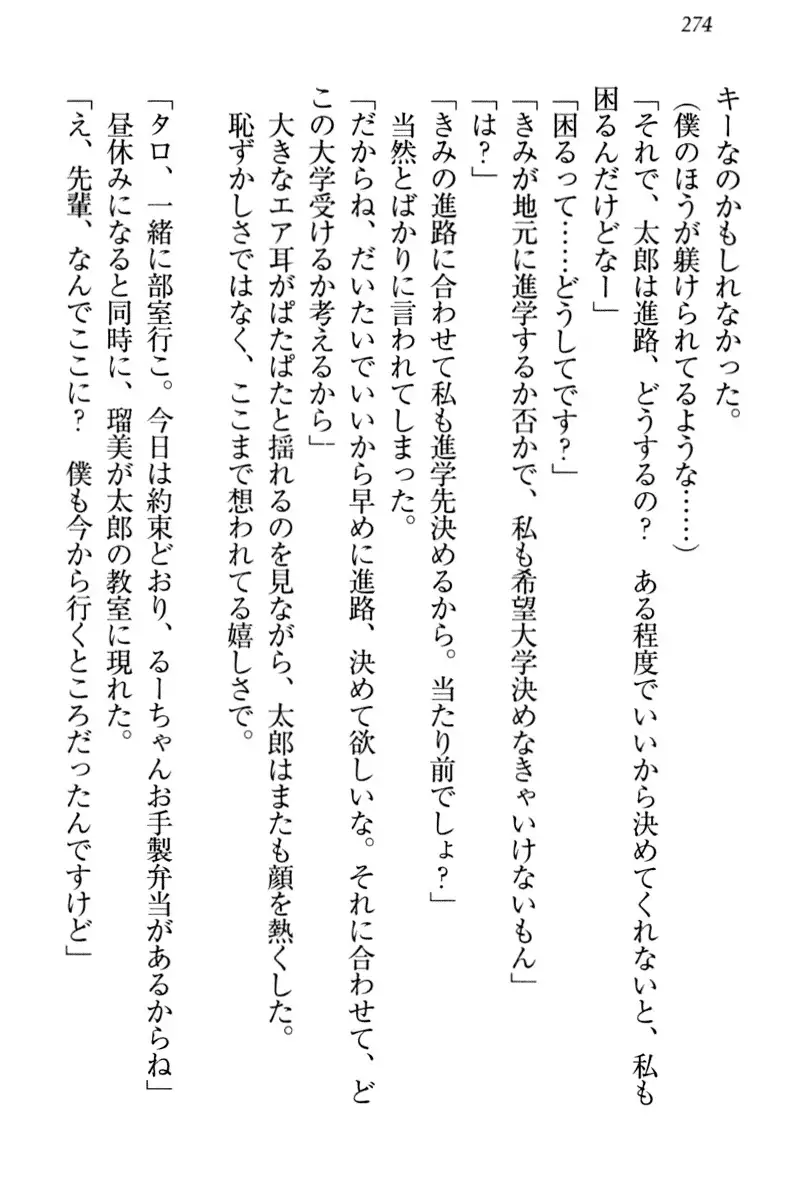 274
キーなのかもしれなかった。
(僕のほうが躾けられてるような……)
「それで、太郎は進路、どうするの？　ある程度でいいから決めてくれないと、私も
困るんだけどなー」
「困るって……どうしてです？」
「きみが地元に進学するか否かで、私も希望大学決めなきゃいけないもん」
「は？」
「きみの進路に合わせて私も進学先決めるから。当たり前でしょ？」
当然とばかりに言われてしまった。
「だからね、だいたいでいいから早めに進路、決めて欲しいな。それに合わせて、ど
この大学受けるか考えるから」
大きなエア耳がぱたぱたと揺れるのを見ながら、太郎はまたも顔を熱くした。
恥ずかしさではなく、ここまで想われてる嬉しさで。
「タロ、一緒に部室行こ。今日は約束どおり、るーちゃんお手製弁当があるからね」
昼休みになると同時に、瑠美が太郎の教室に現れた。
「え、先輩、なんでここに？　僕も今から行くところだったんですけど」